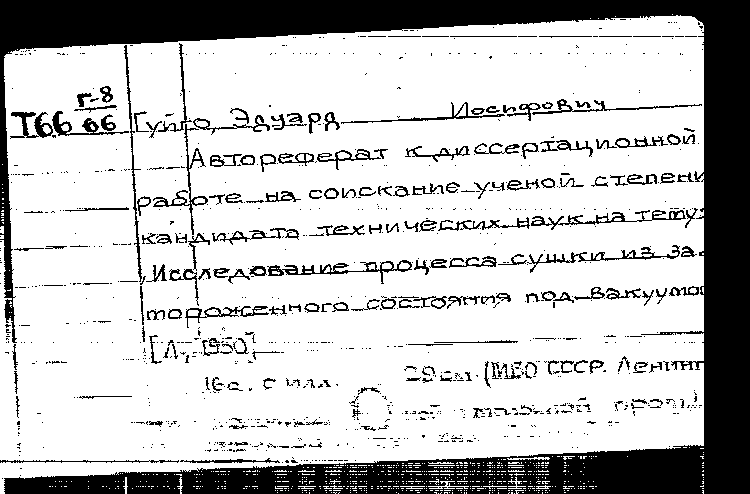 Г-8
Т66 66
Гуйго, Эдуард Иосифович
Автореферат к диссертационной
работе на соискание ученой степени
кандидата технических наук на тему:
"Исследование процесса сушки из за-
мороженного состояния под вакуумо
[Л., 1950]
16с. с илл. 29см. (МВО СССР. Ленинг